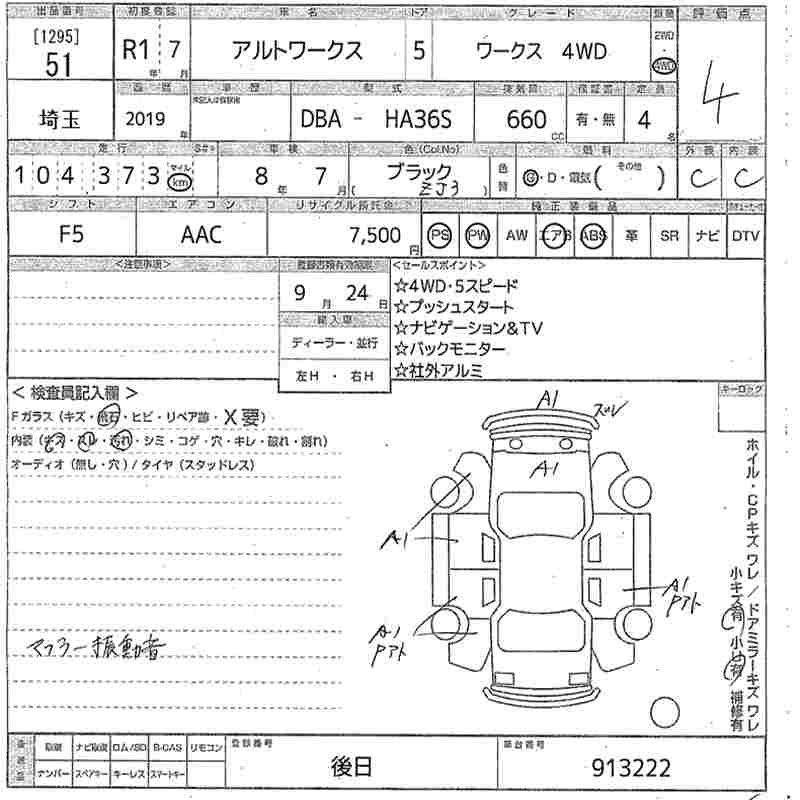 出品番号 初度登録 車名 ドア グレード 駆動 評価点
[1295] 51 R1年 7月 アルトワークス 5 ワークス 4WD 2WD 4WD
4
車歴 型式 排気量 保証書 定員
埼玉 2019年 DBA - HA36S 660cc 有・無 4名
走行 車検 色(Col.No) 色替 燃料 外装 内装
104,373 マイル km 8年 7月 ブラック (ZJ3) G・D・電気( その他 ) C C
シフト エアコン リサイクル預託金 純正装備品
F5 AAC 7,500円 PS PW AW エアB ABS 革 SR ナビ DTV
<注意事項> 登録書類有効期限 <セールスポイント>
9月 24日
☆4WD・5スピード
☆プッシュスタート
輸入車
☆ナビゲーション&TV
ディーラー・並行
☆バックモニター
左H ・ 右H
☆社外アルミ
<検査員記入欄>
キーロック
Fガラス (キズ・飛石・ヒビ・リペア跡・X要)
内装 (キズ・スレ・汚れ・シミ・コゲ・穴・キレ・破れ・割れ)
オーディオ (無し・穴) / タイヤ (スタッドレス)
A1 ズレ
A1
A1
A1 Pアト
A1 Pアト
マフラー振動音
ホイル・CPキズ ワレ / ドアミラーキズ ワレ
小キズ有 小凹有 補修有
取説 ナビ取説 ロム/SD B-CAS リモコン 登録番号 車台番号
ナンバー スペアキー キーレス スマートキー 後日 913222